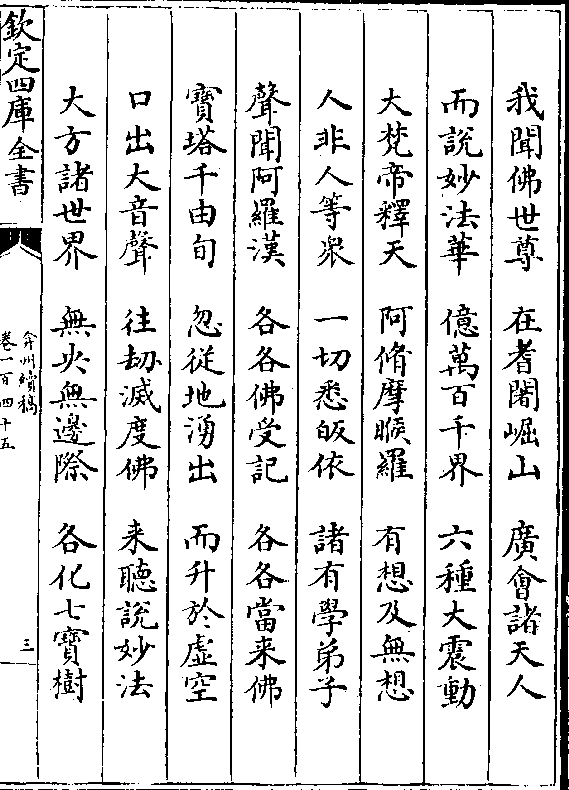 我聞佛世尊　在耆闍崛山　廣會諸天人
而說妙法華　億萬百千界　六種大震動
大梵帝釋天　阿脩摩睺羅　有想及無想
人非人等衆　一切悉皈依　諸有學弟子
聲聞阿羅漢　各各佛受記　各各當来佛
寶塔千由旬　忽從地湧出　而升於虛空
口出大音聲　往劫滅度佛　来聽說妙法
大方諸世界　無央無邊際　各化七寶樹
欽定四庫全書
弇州續稿
卷一百四十五
三